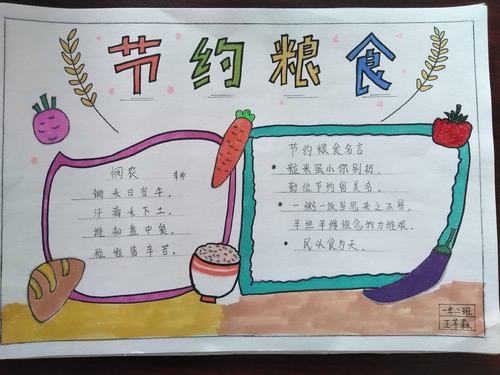 节约粮食
悯农
锄禾日当午,
汗滴禾下土,
谁知盘中餐,
粒粒皆辛苦。
节约粮食名言
粒米虽小你别扔,
勤俭节约留美名。
一粥一饭当思来之不易,
半丝半缕恒念物力维艰。
民以食为天。
一年二班